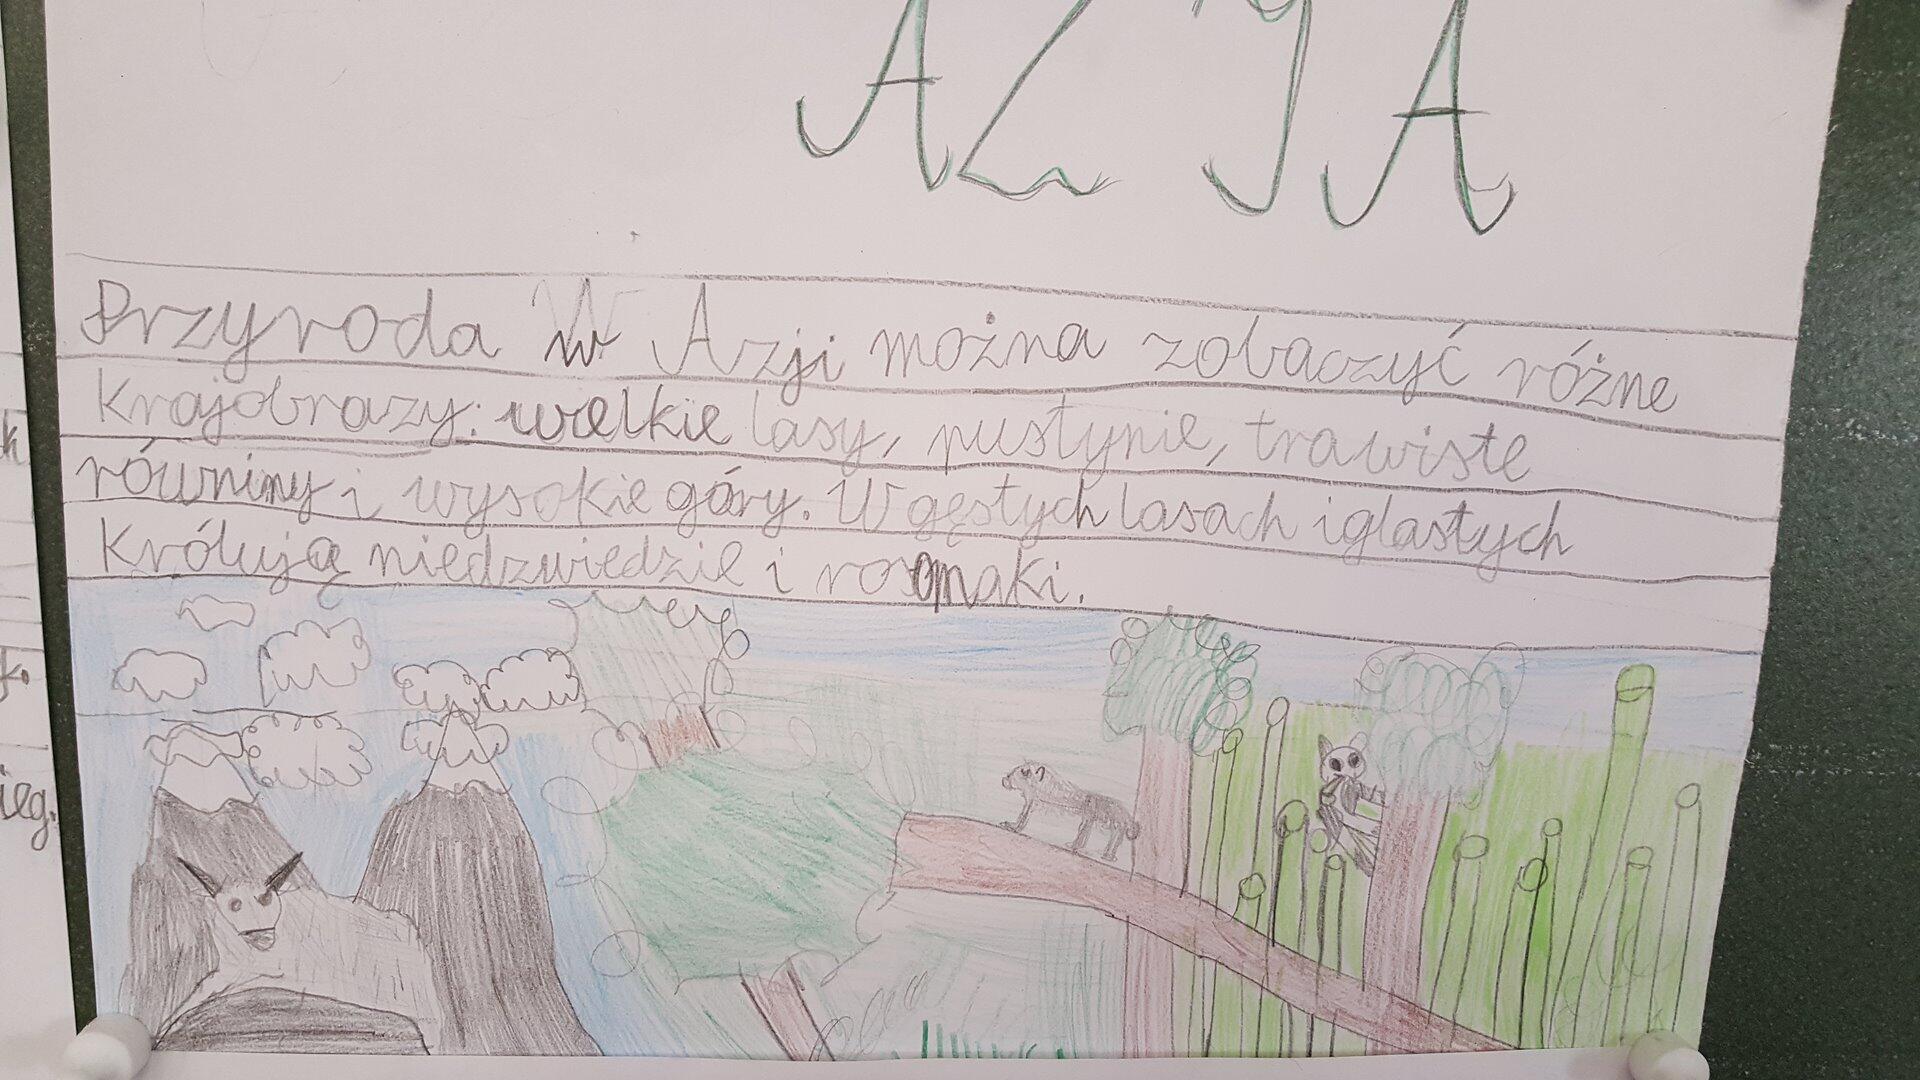 AZJA
Przyroda w Azji można zobaczyć różne
krajobrazy: wielkie lasy, pustynie, trawiste
równiny i wysokie góry. W gęstych lasach iglastych
królują niedzwiedzie i rosomaki.
ieg.